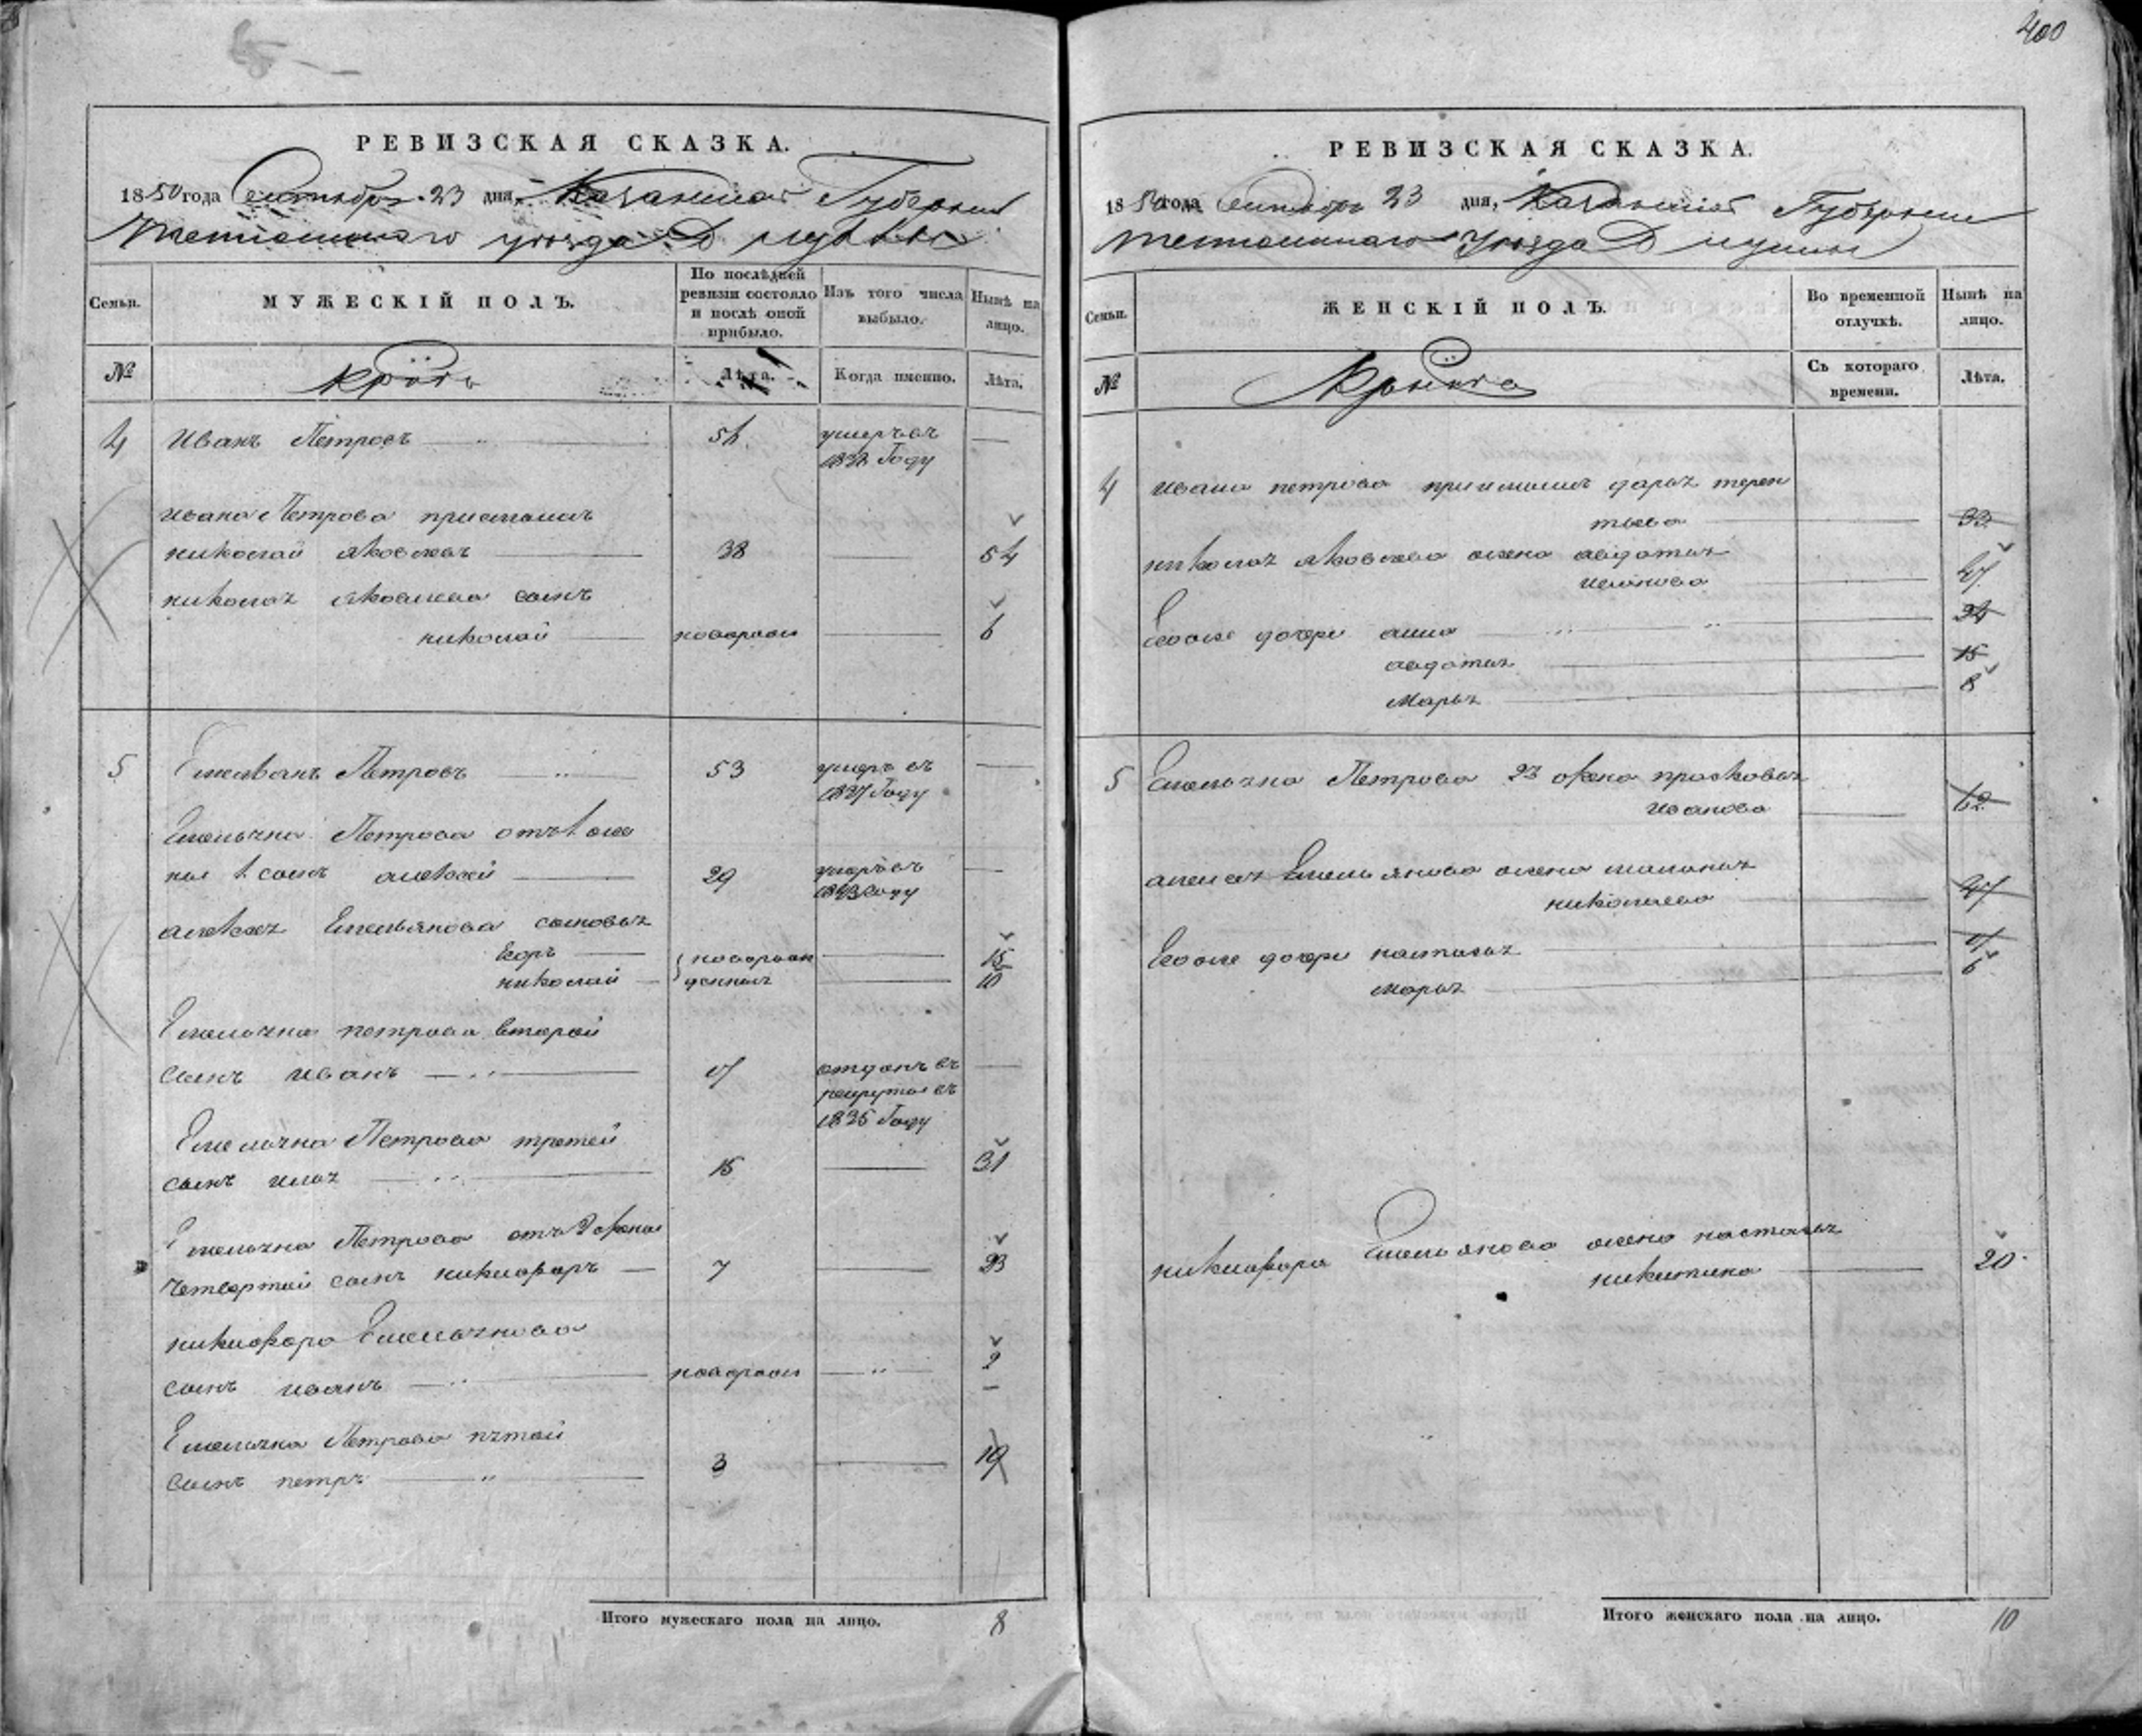 400
РЕВИЗСКАЯ СКАЗКА.
1850 года Сентября 23 дня, Казанской Губернии
Тетюшскаго уезда Д
Семьи.
МУЖЕСКІЙ ПОЛЪ.
По послѣдней ревизіи состояло и послѣ оной прибыло.
Изъ того числа выбыло.
Нынѣ на лицо.
№
Лѣта.
Когда именно.
Лѣта.
4 Иванъ Петровъ умеръ въ
Году
Ивана Петрова приемышъ
николай яковлевъ 38 54
николая яковлева сынъ
николай новорож 6
5 Емельянъ Петровъ 53 умеръ въ
1837 Году
Емельяна Петрова отъ 1 же
ны 1 сынъ алексей 29 умеръ въ
1843 Году
алексея Емельянова сыновья
Егоръ новорож 15
николай денныя 10
Емельяна петрова второй
сынъ иванъ отданъ въ
рекруты въ
1835 Году
Емельяна Петрова третей
сынъ илья 15 31
Емельяна Петрова отъ 2 жены
четвертой сынъ никифоръ 7 23
никифора Емельянова
сынъ иванъ новорож 2
Емельяна Петрова пятой
сынъ петръ 3 19
Итого мужескаго пола на лицо. 8
РЕВИЗСКАЯ СКАЗКА.
1850 года Сентября 23 дня, Казанской Губернии
Тетюшскаго Уезда Д
Семьи.
ЖЕНСКІЙ ПОЛЪ.
Во временной отлучкѣ.
Нынѣ на лицо.
№
Съ котораго времени.
Лѣта.
4 ивана петрова дарья терен
тьева 33
николая яковлева жена авдотья
иванова 47
Ево же дочери анна
авдотья 15
Марья 8
5 Емельяна Петрова 2я жена прасковья
иванова 62
алексея Емельянова жена маланья
николаева 47
Ево же дочери настасья
марья 6
никифора Емельянова жена настасья
никитина 20
Итого женскаго пола на лицо. 10